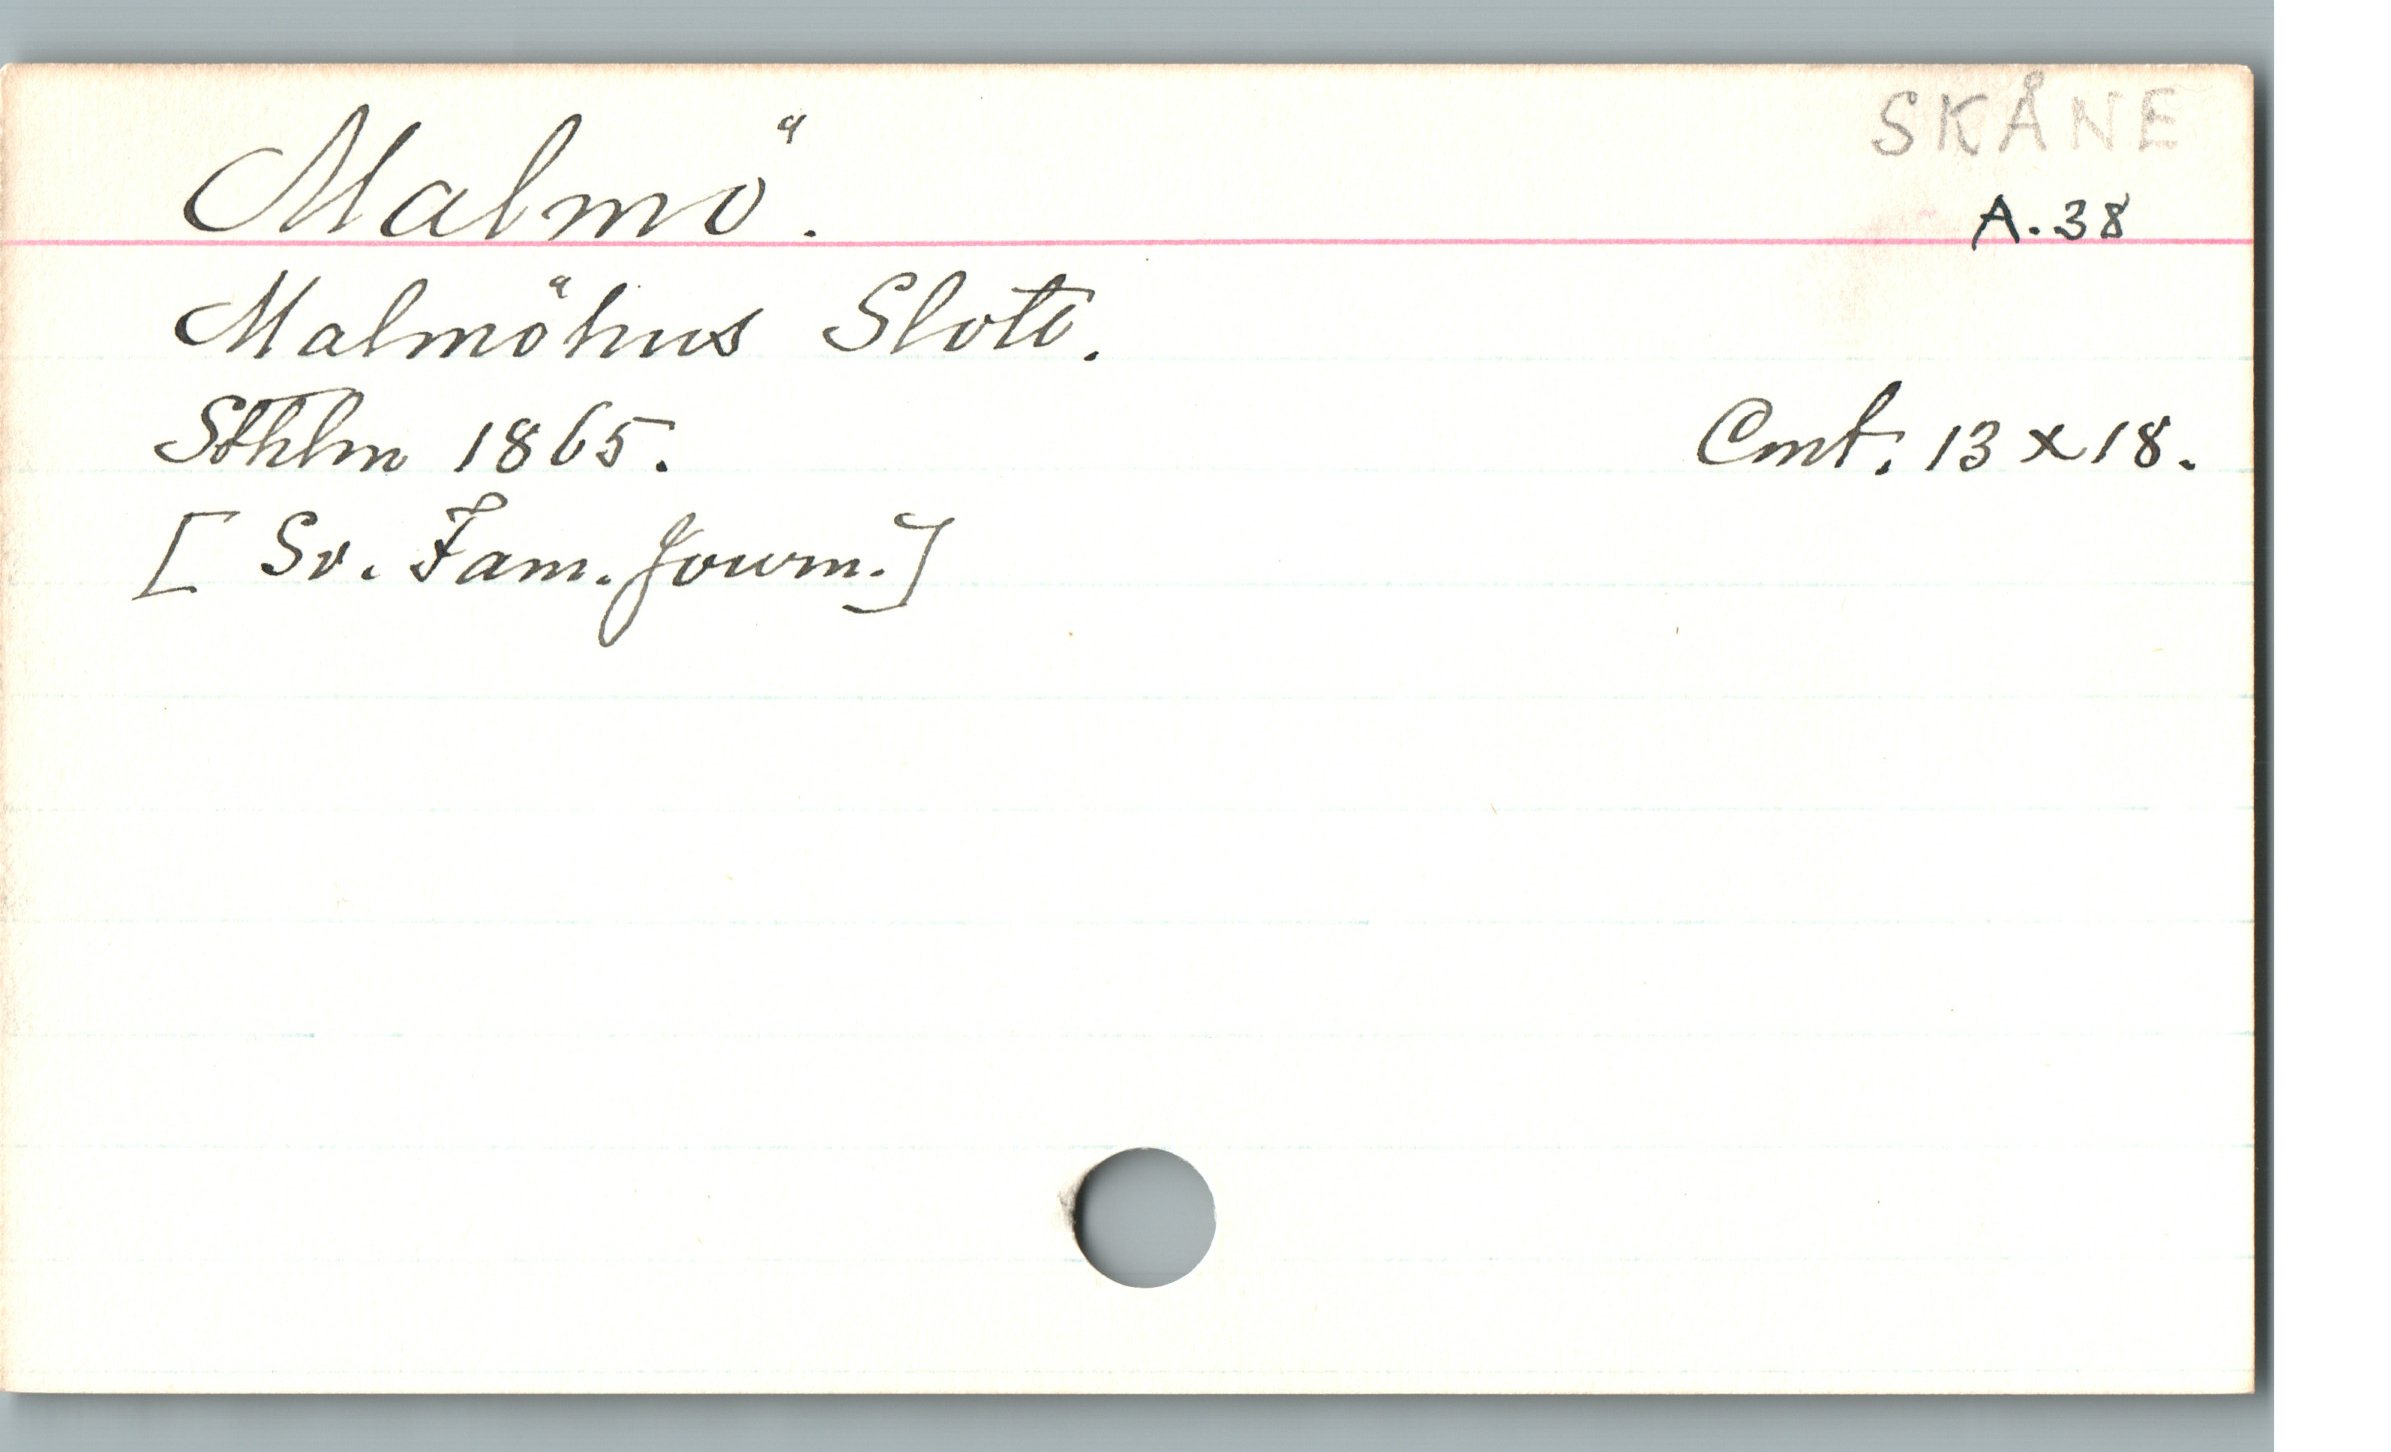 SKÅNE
Malmö.
A.38
Malmöhus Slott.
Sthlm 1865.
Cmt. 13 x 18.
[ Sv. Fam. Journ.]